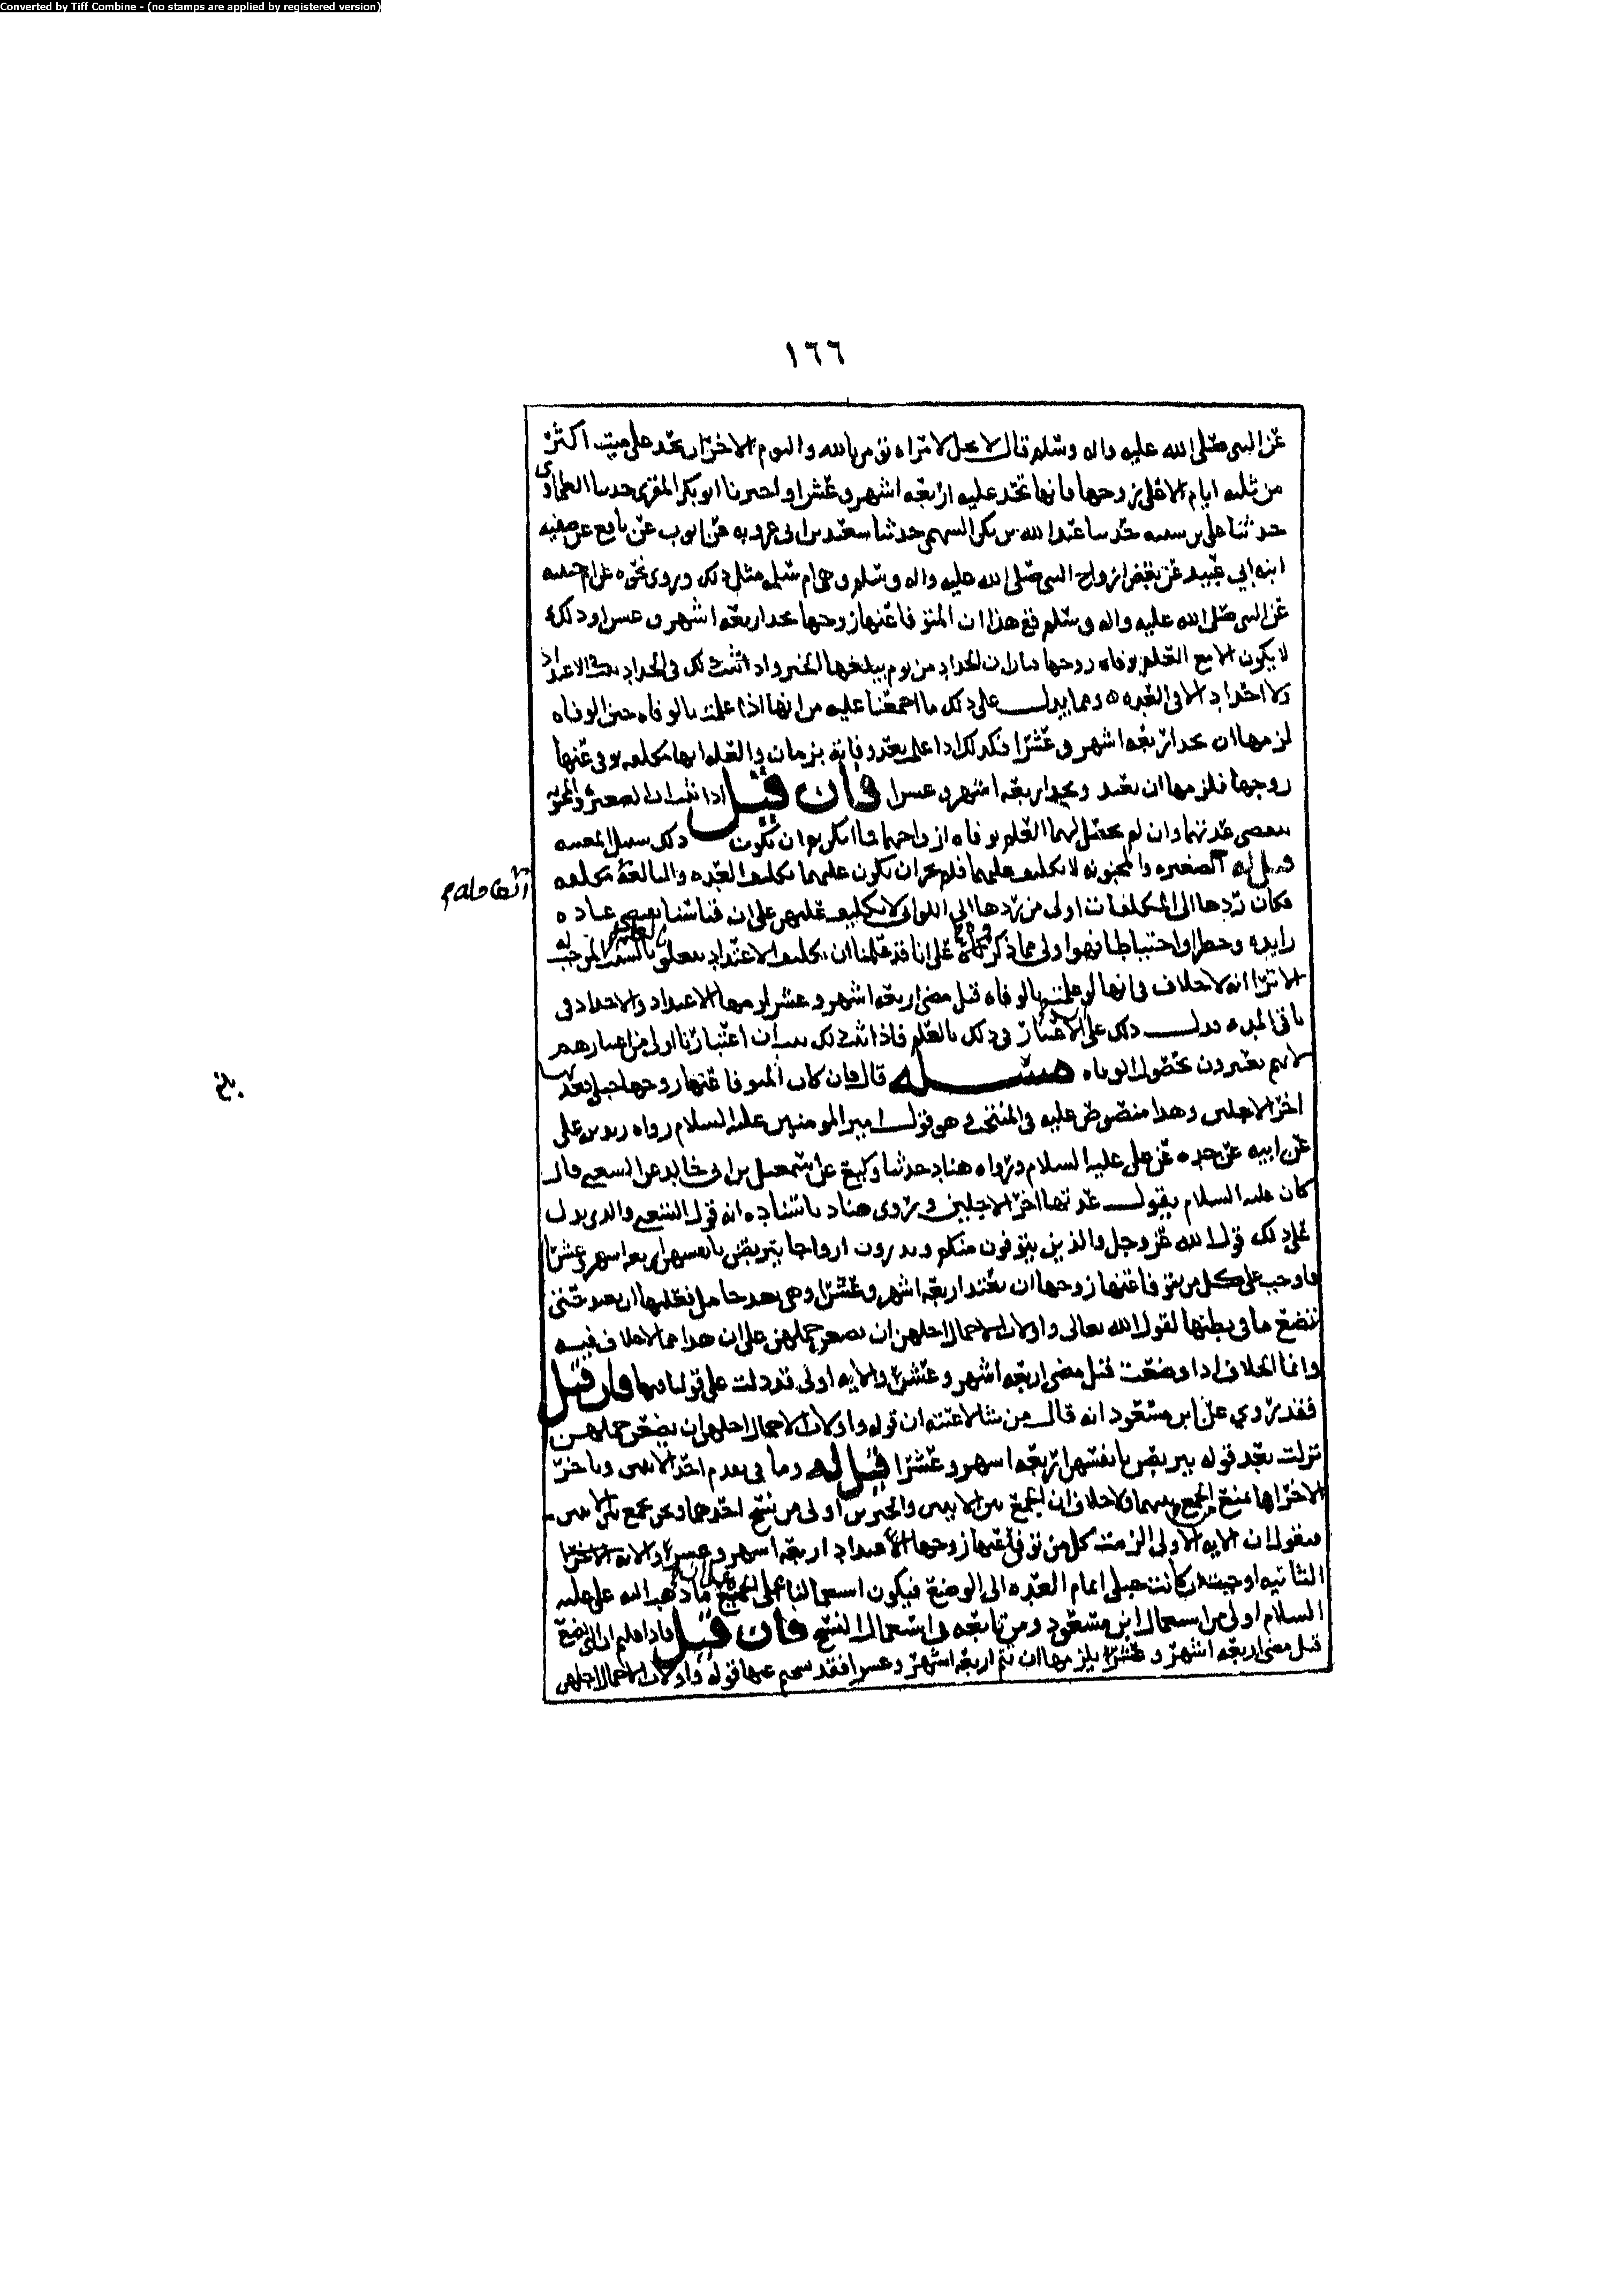 Converted by Tiff Combine - (no stamps are applied by registered version)
١٦٦
عن النبي صلى الله عليه واله وسلم قال لا يحل لامراه تومن بالله واليوم الاخر ان تحد على ميت اكثر
من ثلثه ايام الا على زوجها فانها تحد عليه اربعه اشهر وعشرا واخبرنا ابو بكر المقري حدثنا الطحاوي
حدثنا علي بن شيبه حدثنا عبد الله بن بكر السهمي حدثنا سعيد بن ابي عروبه عن ايوب عن نافع عن صفيه
ابنه ابي عبيد عن بعض ازواج النبي صلى الله عليه واله وسلم وهي ام سلمه مثل ذلك وروى نحوه عن ام حبيبه
عن النبي صلى الله عليه واله وسلم فصح هذا ان المتوفا عنها زوجها تحد اربعه اشهر وعشرا وذلك
لا يكون الا مع العلم بوفاه زوجها فبان ان الحداد من يوم يبلغها الخبر واذا ثبت ذلك في الحداد ثبت في الاعتداد
ولا احداد الا في العده ومما يدل على ذلك ما اجمعنا عليه من انها اذا علمت بالوفاه حين الوفاه
لزمها ان تحد اربعه اشهر وعشرا فكذلك اذا علمت بعد وفاته بزمان والعله انها مكلفه توفي عنها
زوجها فلزمها ان تعتد وتحد اربعه اشهر وعشرا فان قيل اذا ثبت ان الصغيره والمجنونه
تنقضي عدتهما وان لم يحصل لهما العلم بوفاه ازواجهما فما انكرتم ان يكون ذلك سبيل
قيل له الصغيره والمجنونه لا تكليف عليهما فلم يجز ان يكون عليهما تكليف العده والبالغه مكلفه
فكان ردها الى المكلفات اولى من ردها الى اللواتي لا تكليف عليهن على ان قياسنا يقتضي عباده
زايده وحظرا واحتياطا فهو اولى مما ذكروه على انا قد علمنا ان تكليف الاعتداد يتعلق بالسبب الموجب له
الا ترى انه لا خلاف في انها لو علمت بالوفاه قبل مضي اربعه اشهر وعشر لزمها الاعتداد والاحداد في
باقي المده فدل ذلك على الاعتبار في ذلك بالعلم فاذا ثبت ذلك بان ان اعتبارنا اولى من اعتبارهم
لانهم يعتبرون بحصول الوفاه مسئله قال فان كانت المتوفا عنها زوجها حبلى فعدتها
اخر الاجلين وهذا منصوص عليه في المنتخب وهو قول امير المومنين عليه السلام رواه زيد بن علي
عن ابيه عن جده عن علي عليه السلام ورواه هناد حدثنا وكيع عن اسمعيل بن ابي خالد عن الشعبي قال
كان عليه السلام يقول عدتها اخر الاجلين وروى هناد باسناده انه قول الشعبي والذي يدل
على ذلك قول الله عز وجل والذين يتوفون منكم ويذرون ازواجا يتربصن بانفسهن اربعه اشهر وعشرا
فاوجب على كل من يتوفا عنها زوجها ان تعتد اربعه اشهر وعشرا وهي بعد حامل فعليها ان تعتد حتى
تضع ما في بطنها لقول الله تعالى واولات الاحمال اجلهن ان يضعن حملهن على ان هذا مما لا خلاف فيه
وانما الخلاف اذا وضعت قبل مضي اربعه اشهر وعشرا والايه اولى قد دلت على قولنا فيها فان قيل
فقد روي عن ابن مسعود انه قال من شا لاعنته ان قوله واولات الاحمال اجلهن ان يضعن حملهن
نزلت بعد قوله يتربصن بانفسهن اربعه اشهر وعشرا قيل له وما في تقدم احد الايتين وتاخر
الاخرى ما يمنع من الجمع بينهما ولا خلاف ان الجمع بين الايتين والخبرين اولى من نسخ احدهما ونحن نجمع بين الايتين
فنقول ان الايه الاولى الزمت كل من توفي عنها زوجها الاعتداد اربعه اشهر وعشرا والايه
الثانيه اوجبت ان كانت حبلى اتمام العده الى الوضع فيكون استعمالنا على الجمع على ما ذهب اليه علي عليه
السلام اولى من استعمال ابن مسعود ومن تابعه في استعمال النسخ فان قيل فاذا قلتم ان التي تضع
قبل مضي اربعه اشهر وعشرا يلزمها ان تتم اربعه اشهر وعشرا فقد نسختم عنها قوله واولات الاحمال اجلهن
بلغ